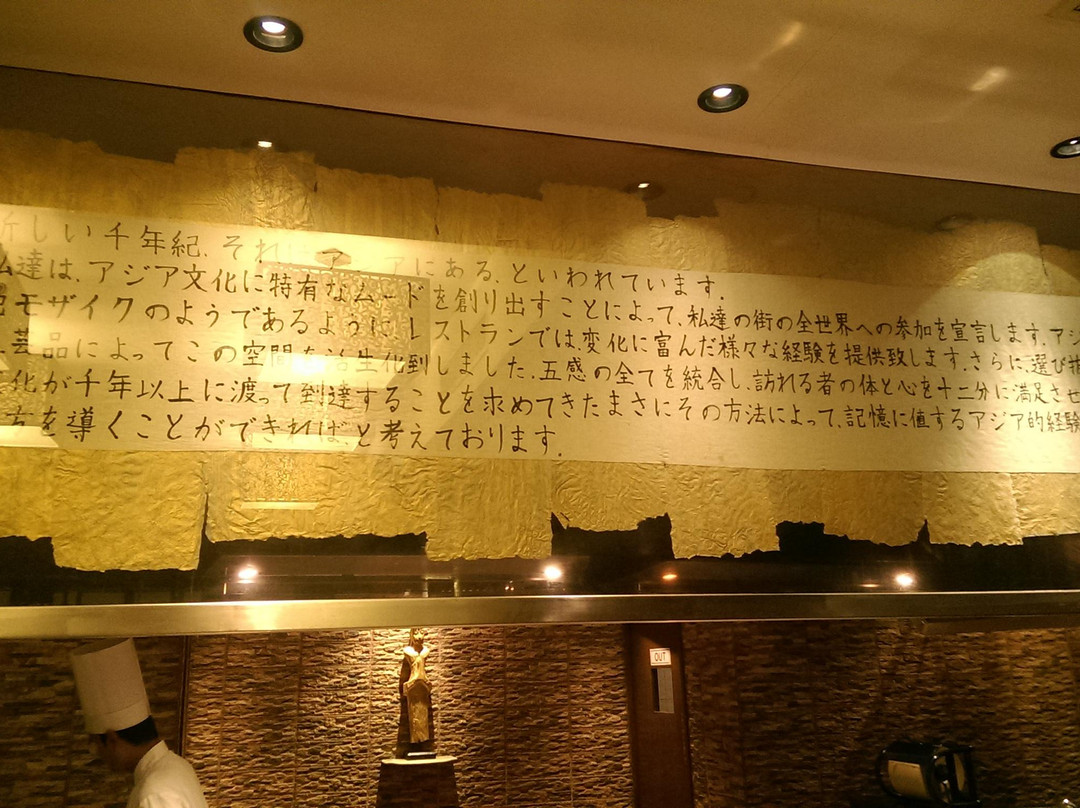 新しい千年紀、それは アジアにある、といわれています。
私達は、アジア文化に特有なムードを創り出すことによって、私達の街の全世界への参加を宣言します。アジ
モザイクのようであるように、レストランでは、変化に富んだ様々な経験を提供致します。さらに、選び
芸品によってこの空間を活生化到しました。五感の全てを統合し、訪れる者の体と心を十二分に満足させ
化が千年以上に渡って到達することを求めてきたまさにその方法によって、記憶に値するアジア的経験
方を導くことができれば、と考えております。
OUT